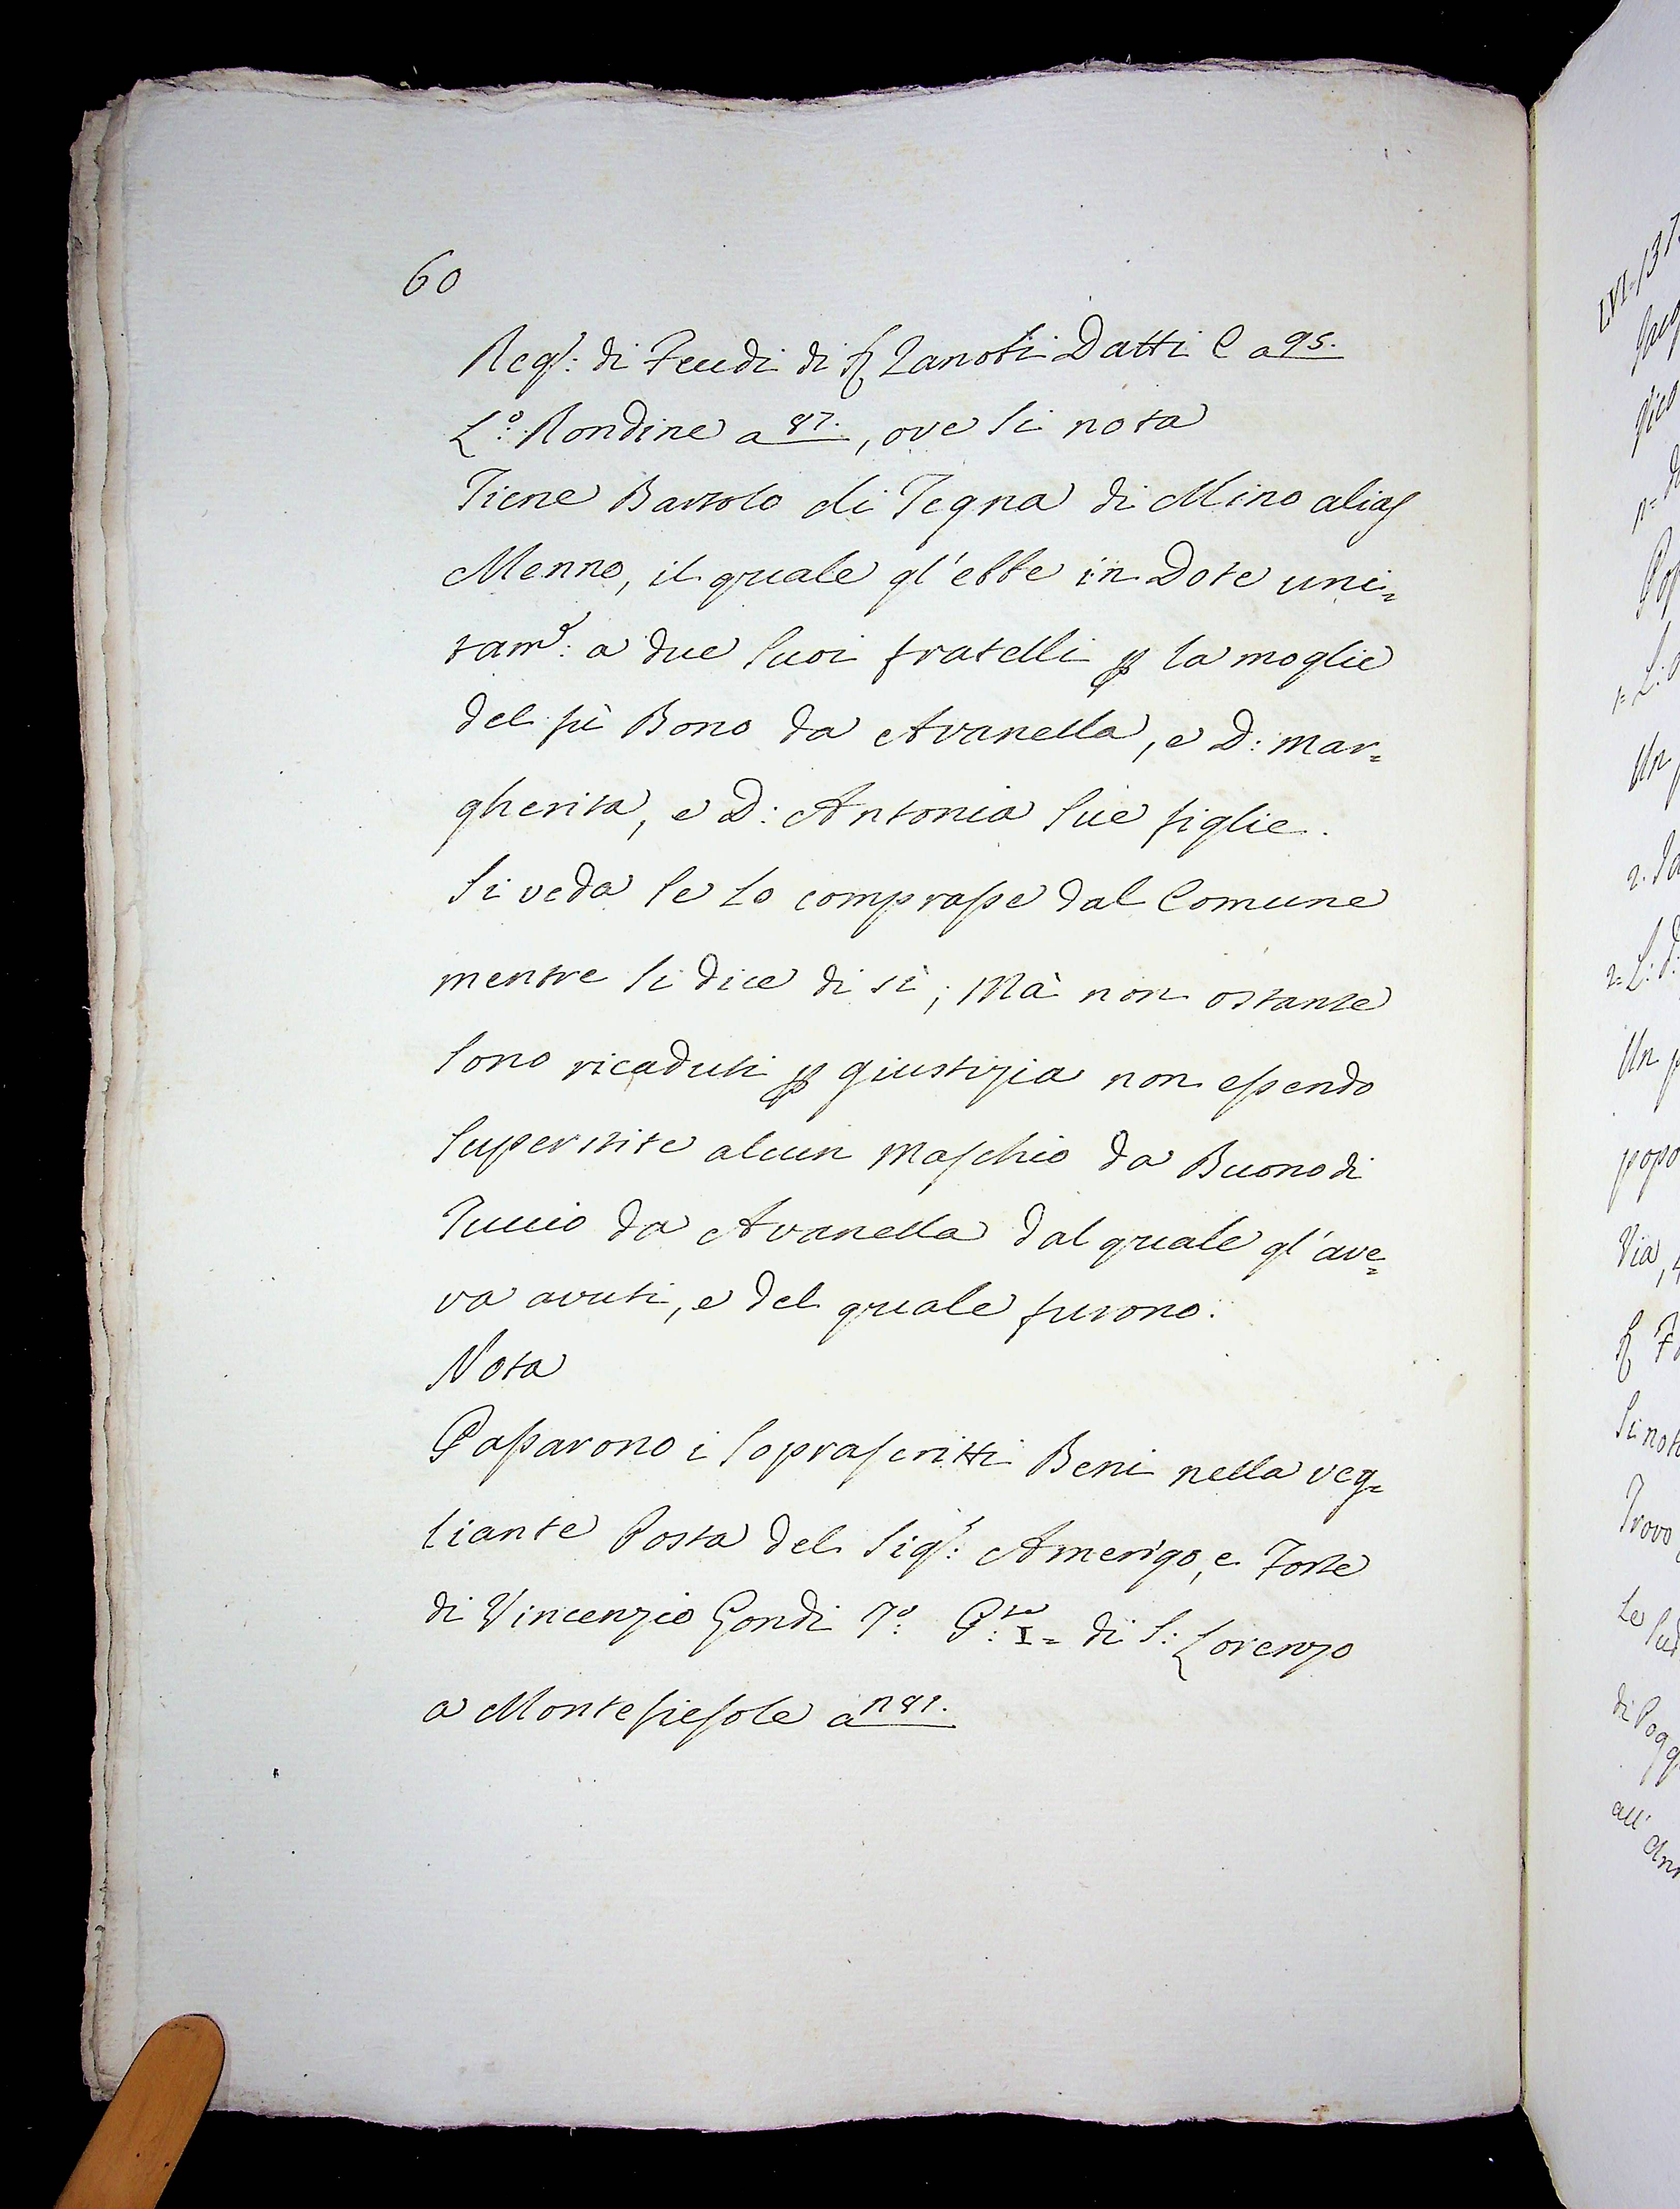 60
Regr: di Feudi di Sr Zanobi Datti C a 95.
Lo: Rondine a 87., ove si nota
Tiene Bartolo di Tegna di Mino alias
Menno, il quale gl'ebbe in Dote uni=
tamte: a due suoi fratelli p la moglie
del fù Bono da Avanella, e D: Mar=
gherita, e D: Antonia sue figlie.
Si veda se lo comprasse dal Comune
mentre si dice di sì; Mà non ostante
sono ricaduti p giustizia non essendo
superstite alcun Maschio da Buono di
Tuccio da Avanella dal quale gl'ave=
va avuti, e del quale furono.
Nota
Passarono i soprascritti Beni nella veg=
liante Posta del Sigr: Amerigo, e Torre
di Vincenzio Gondi Po: I= di S: Lorenzo
a Montefiesole a n 81.
LVI= 137
Un
popo
Via,
Si nota
Trovo
di Pogg
all'